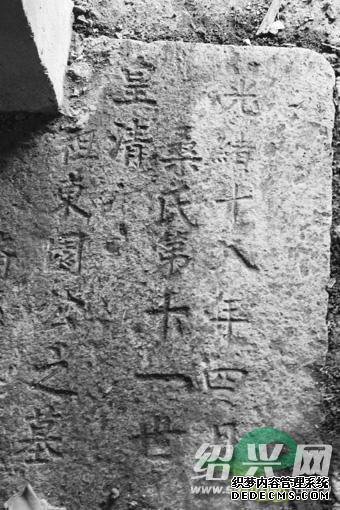 光緒十八年四月
桑氏第十一世
皇清
祖東園公之墓
绍兴网
织梦内容管理系统
DEDECMS.COM